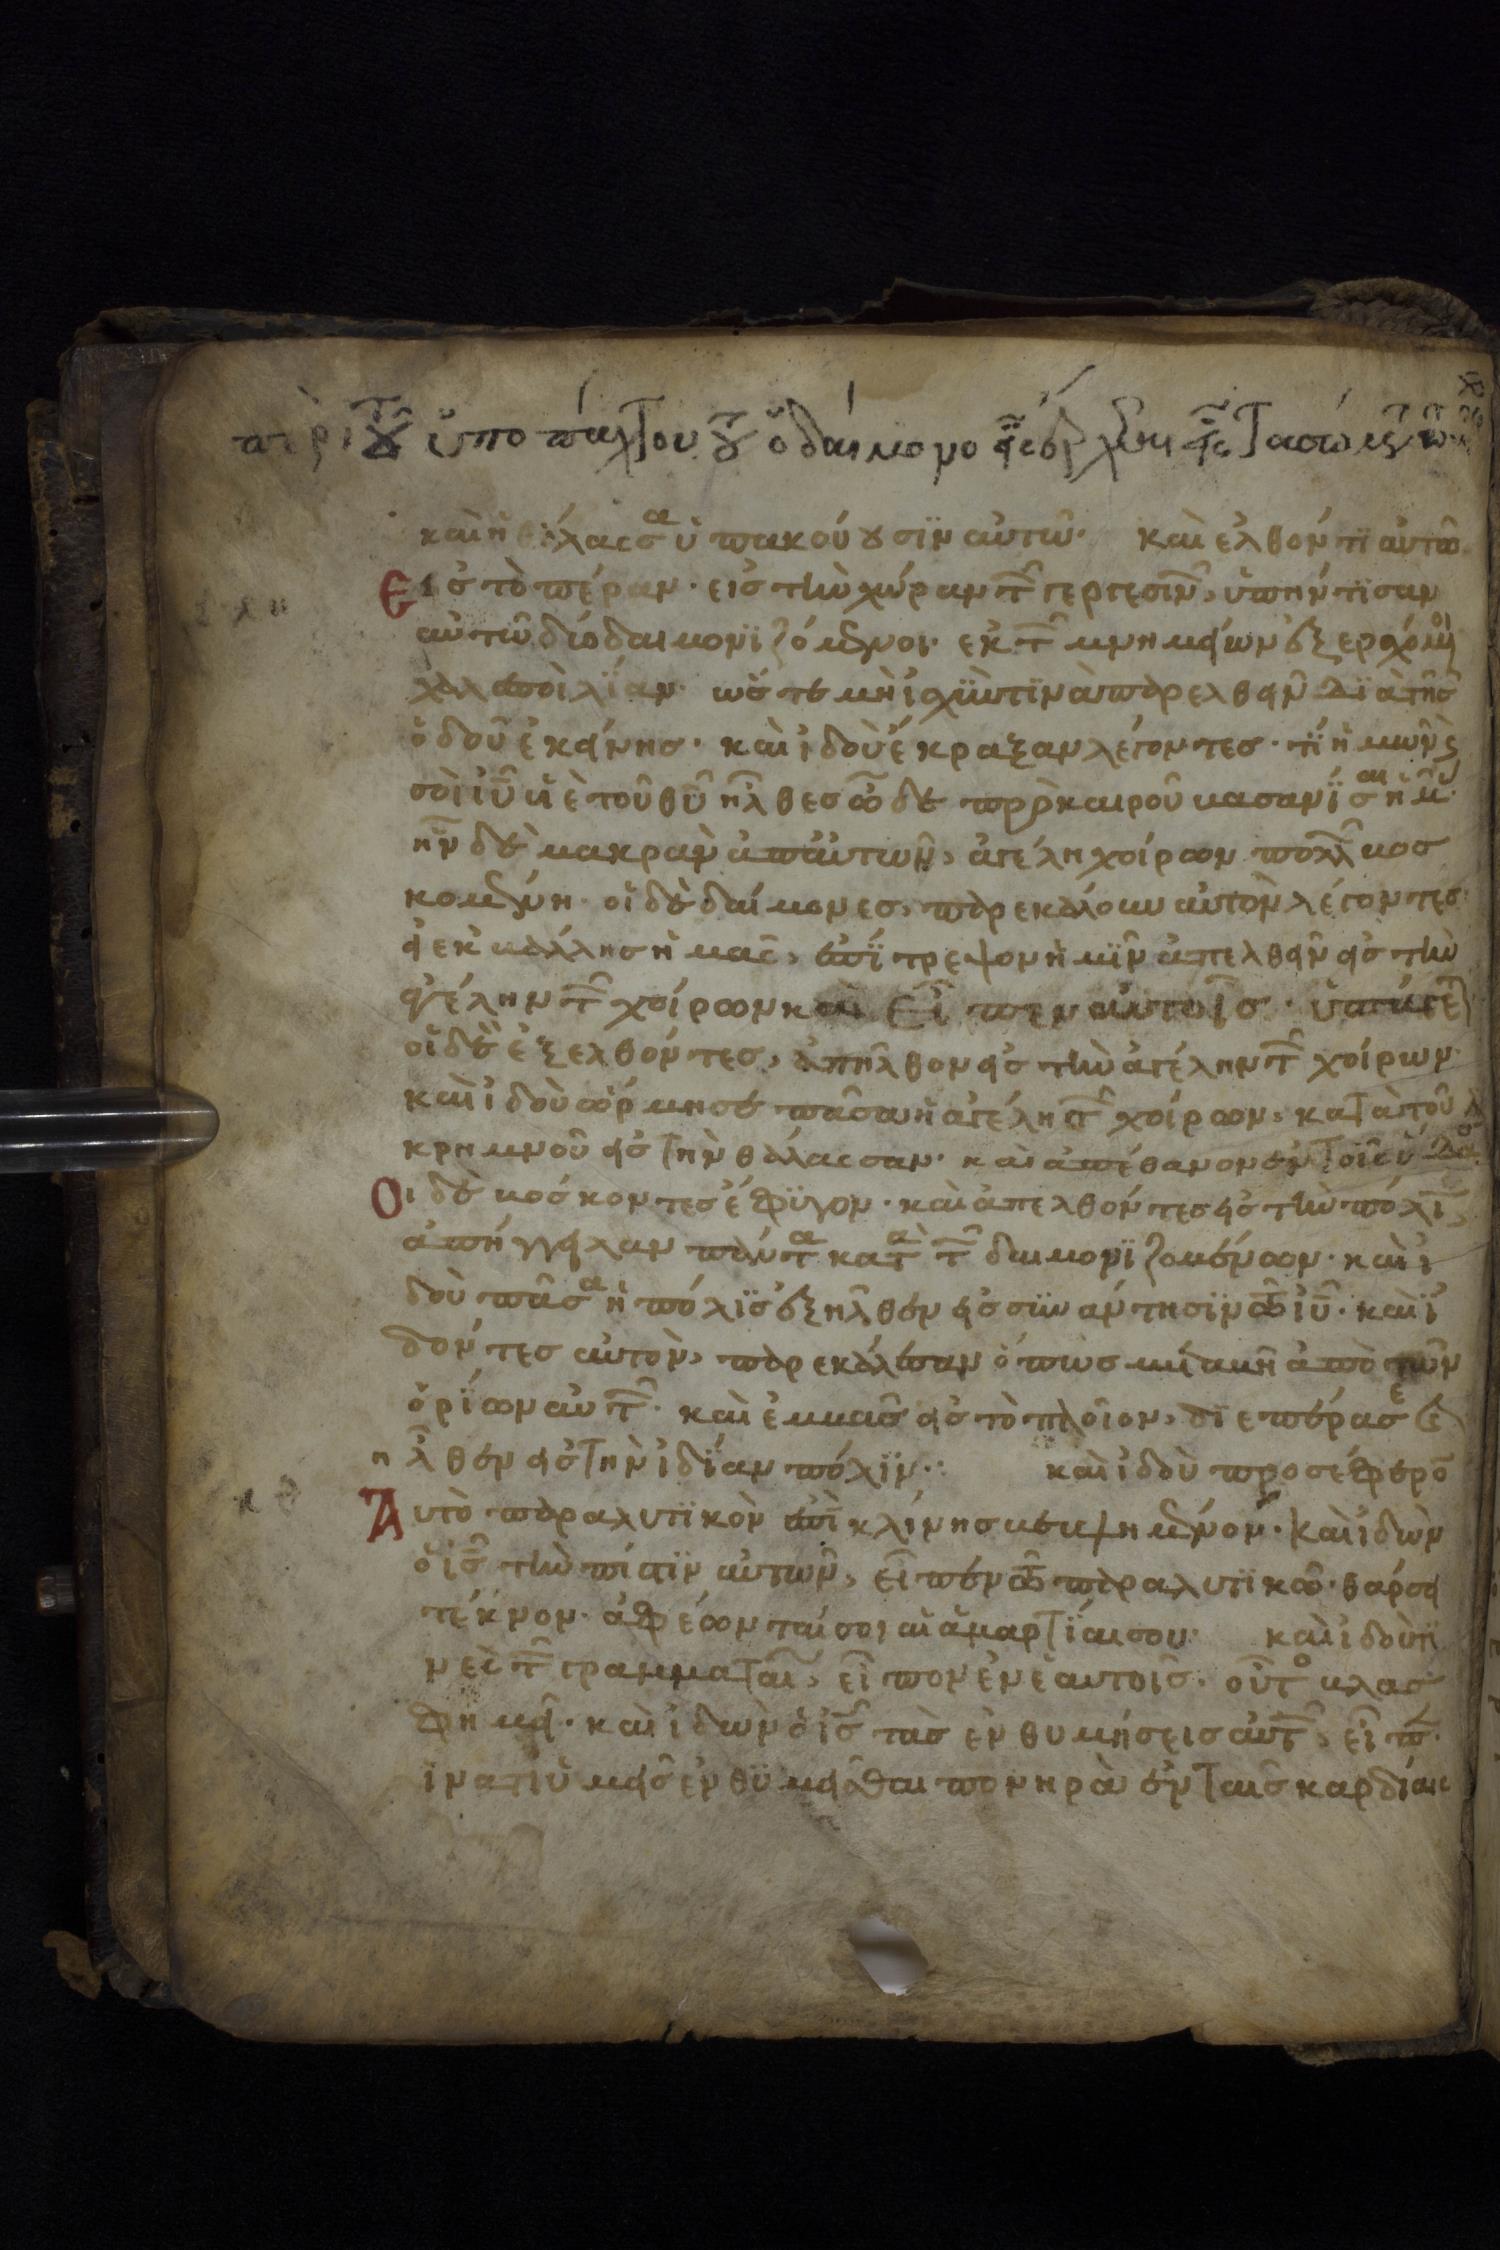 καὶ ἡ θάλασσα ὑπακούουσϊν αὐτῶ· καὶ ἐλθόντϊ αὐτῶ
εἰσ τὸ πέραν· εισ τὴν χώραν τῶν γεργεσινῶν, ὑπήντϊσαν
αὐτῶ δύο δαιμονϊζόμενοι· εκ τῶν μνημείων ἐξερχόμενοι
χαλεποὶ λΐαν· ὥστε μὴ ϊσχΰϊν τϊνὰ παρελθεῖν δϊὰ τῆσ
ὁδοῦ ἐκείνησ· καὶ ἰδοὺ ἔκραξαν λέγοντεσ· τΐ ἡμῖν καὶ
σοὶ ἰῦ υἱὲ τοῦ θῦ ἦλθεσ ὧδε πρὸ καιροῦ βασανΐσαι ἡμᾶσ·
ἦν δὲ μακρὰν ἀπ αὐτῶν, ἀγέλη χοίρων πολλῶν βοσ
κομένη· οἱ δὲ δαίμονεσ, παρεκάλουν αὐτὸν λέγοντεσ·
εἰ εκβάλλησ ἡμᾶσ, ἐπΐτρεψον ἡμῖν ἀπελθεῖν εἰσ τὴν
ἀγέλην τῶν χοίρων καὶ εἶπεν αὐτοῖσ· ὑπάγετε
οἱ δὲ ἐξελθόντεσ, ἀπῆλθον εἰσ τὴν ἀγέλην τῶν χοίρων·
καὶ ἰδοὺ ὥρμησε πᾶσα ἡ ἀγέλη τῶν χοίρων, κατὰ τοῦ
κρημνοῦ εἰσ τὴν θάλασσαν· καὶ ἀπέθανον ἐν τοῖσ ὕδασ
Οἱ δὲ βόσκοντεσ ἔφϋγον· καὶ ἀπελθόντεσ εἰσ τὴν πόλϊν,
ἀπήγγειλαν πάντα κατὰ τῶν δαιμονϊζομένων· καὶ ἰ
δοὺ πᾶσα ἡ πόλϊσ ἐξῆλθεν εἰσ συνάντησϊν τῶ ἰῦ· καὶ ἰ
δόντεσ αὐτὸν, παρεκάλεσαν ὅπωσ μεταβῆ ἀπὸ τῶν
ὁρΐων αὐτῶν· καὶ ἐμβὰσ εἰσ τὸ πλοῖον, δϊεπέρασε καὶ
ἦλθεν εἰσ τὴν ἰδΐαν πόλϊν·: καὶ ἰδοὺ προσέφερον
Αὐτὸ παραλυτϊκὸν ἐπὶ κλίνησ βεβλημένον· καὶ ἰδὼν
ὁ ἰσ τὴν πίστϊν αὐτῶν, εἶπεν τῶ παραλυτϊκῶ· θάρσει
τέκνον· ἀφέωνταί σοι αἱ ἁμαρτΐαι σου· καὶ ἰδού τϊ
νεσ τῶν γραμματαίων, εἶπον ἐν ἑαυτοῖσ· οὗτοσ βλασ
φημεῖ· καὶ ἰδὼν ὁ ἰσ τὰσ ἐνθυμήσεισ αὐτῶν, εἶπεν·
ἱνατί ὑμεῖσ ἐνθϋμεῖσθαι πονηρὰ ἐν ταῖσ καρδίαισ